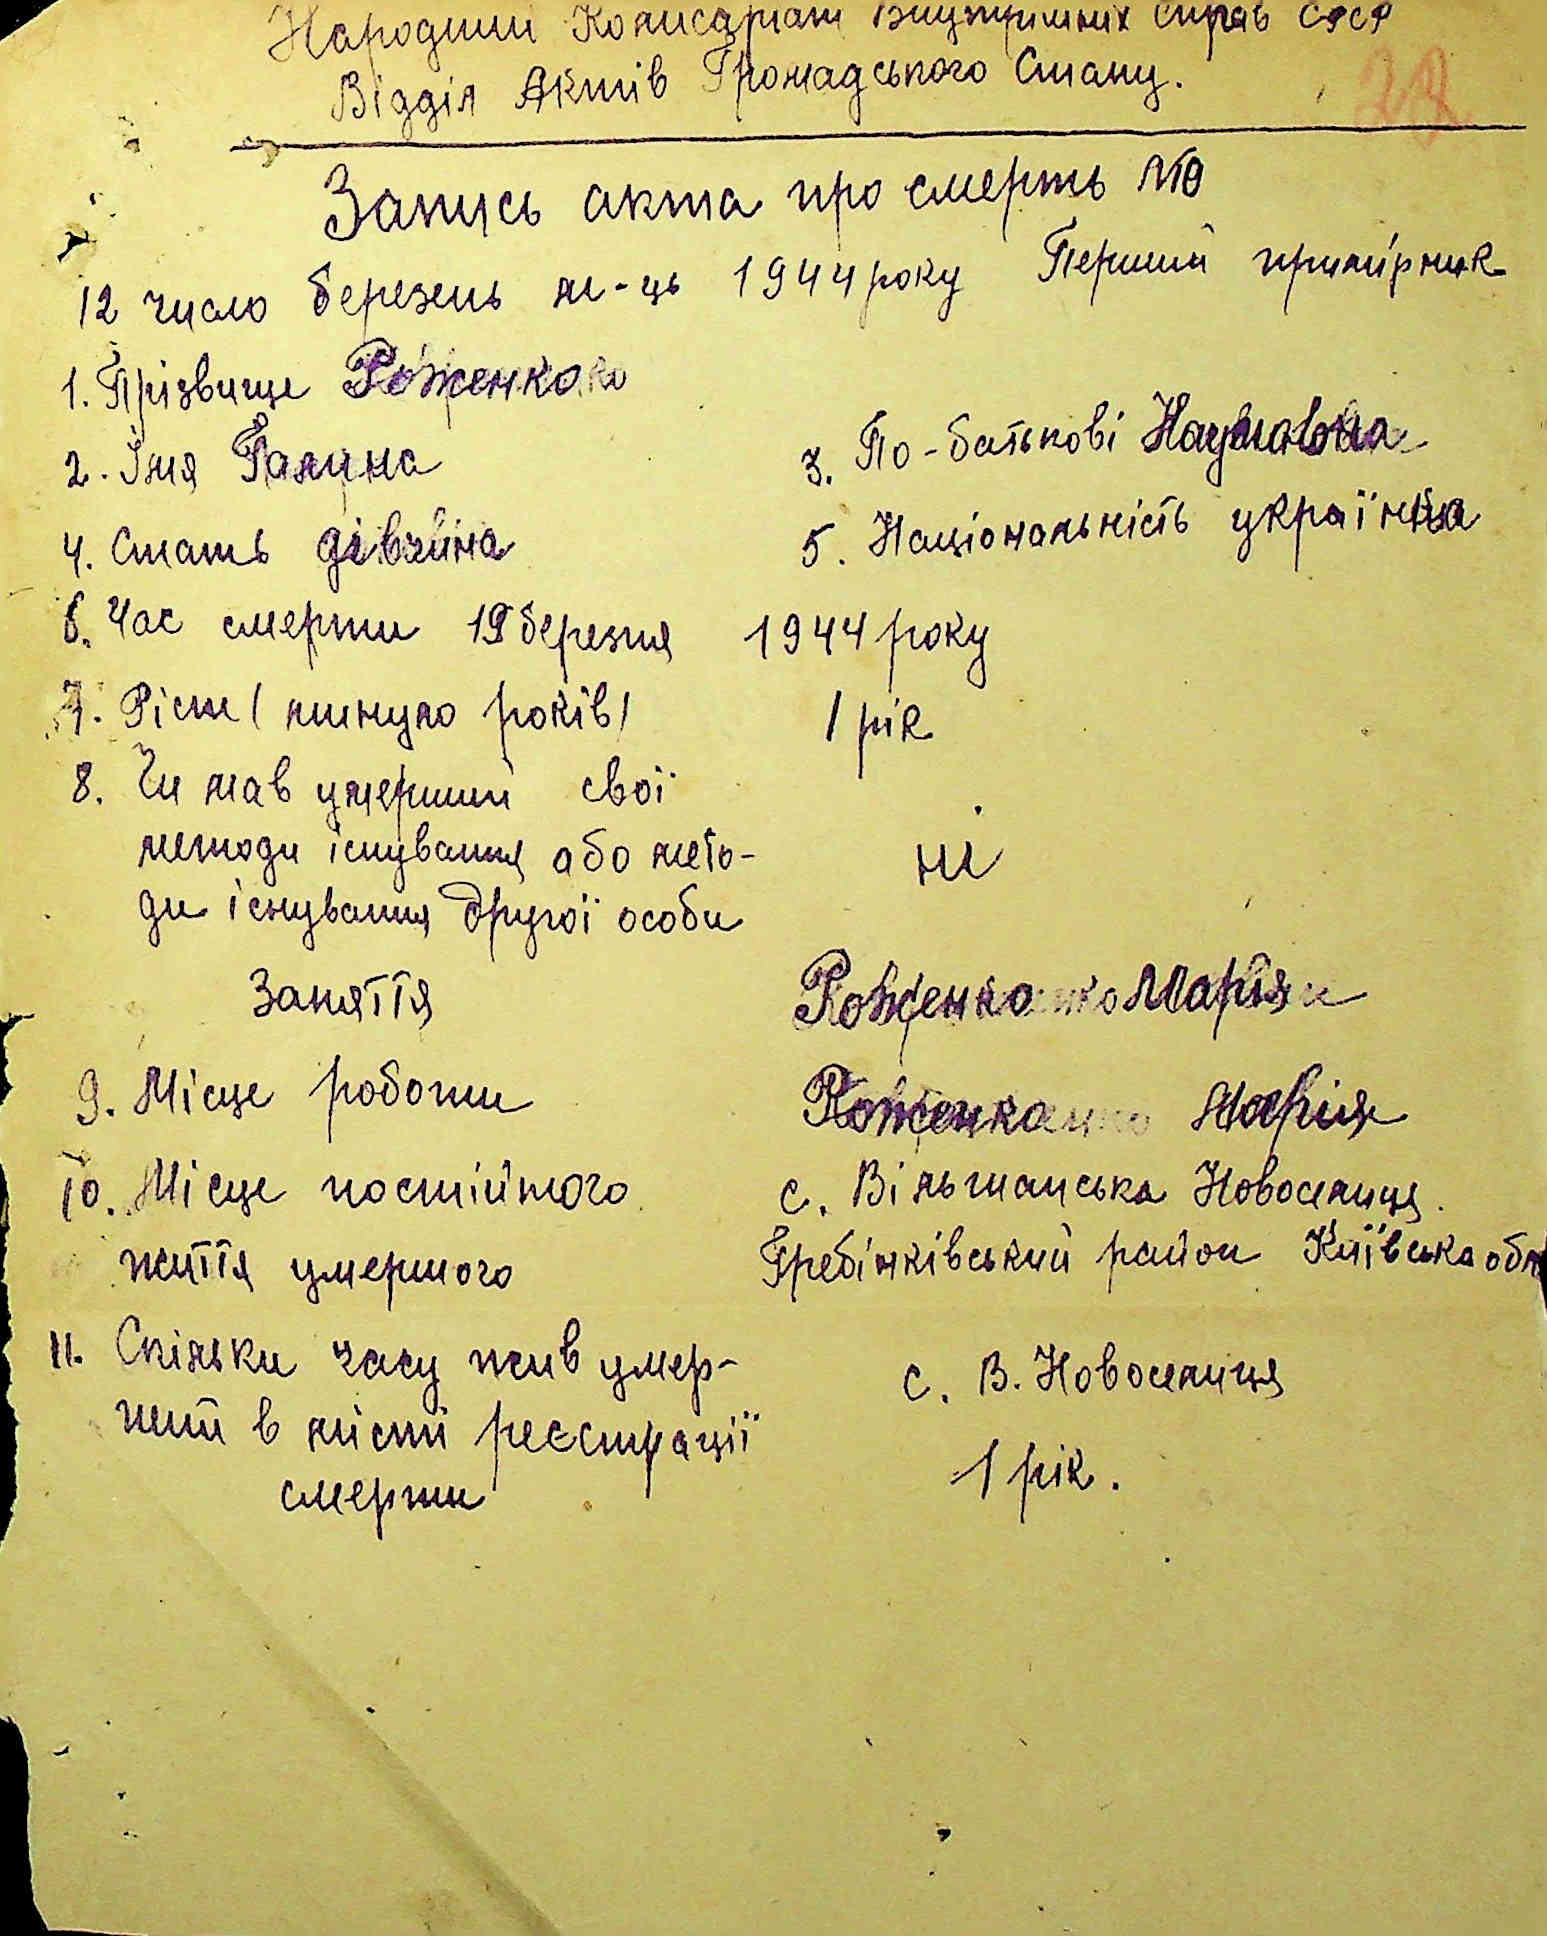 Народний Комисаріат Внутрішніх Справ СРСР
Відділ Актів Громадського Стану.
28
Запись акта про смерть №
12 число березень м-ць 1944 року Перший примірник
1. Прізвище Роженко
2. Імя Галина
3. По-батькові Наумовна
4. Стать дівчина
5. Національність українка
6. Час смерти 19 березня 1944 року
7. Рісти (минуло років) 1 рік
8. Чи мав умерший свої
методи існування або мето-
ди існування другої особи
ні
Заняття Роженко Марія
9. Місце роботи Роженко Марія
10. Місце постійного с. Вільшанська Новоселиця.
життя умершого Гребінківський район Київська обл
11. Скільки часу жив умер-
ший в місті реєстрації
смерти
с. В. Новоселиця
1 рік.